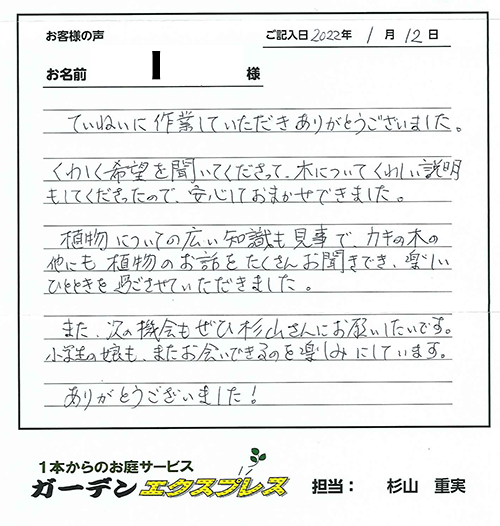 お客様の声
ご記入日 2022年 1月 12日
お名前 様
ていねいに作業していただきありがとうございました。
くわしく希望を聞いてくださって、木についてくわしい説明
もしてくださったので、安心しておまかせできました。
植物についての広い知識も見事で、カキの木の
他にも植物のお話をたくさんお聞きでき、楽しい
ひとときを過ごさせていただきました。
また、次の機会もぜひ杉山さんにお願いしたいです。
小学生の娘も、またお会いできるのを楽しみにしています。
ありがとうございました！
1本からのお庭サービス
ガーデンエクスプレス 担当： 杉山 重実